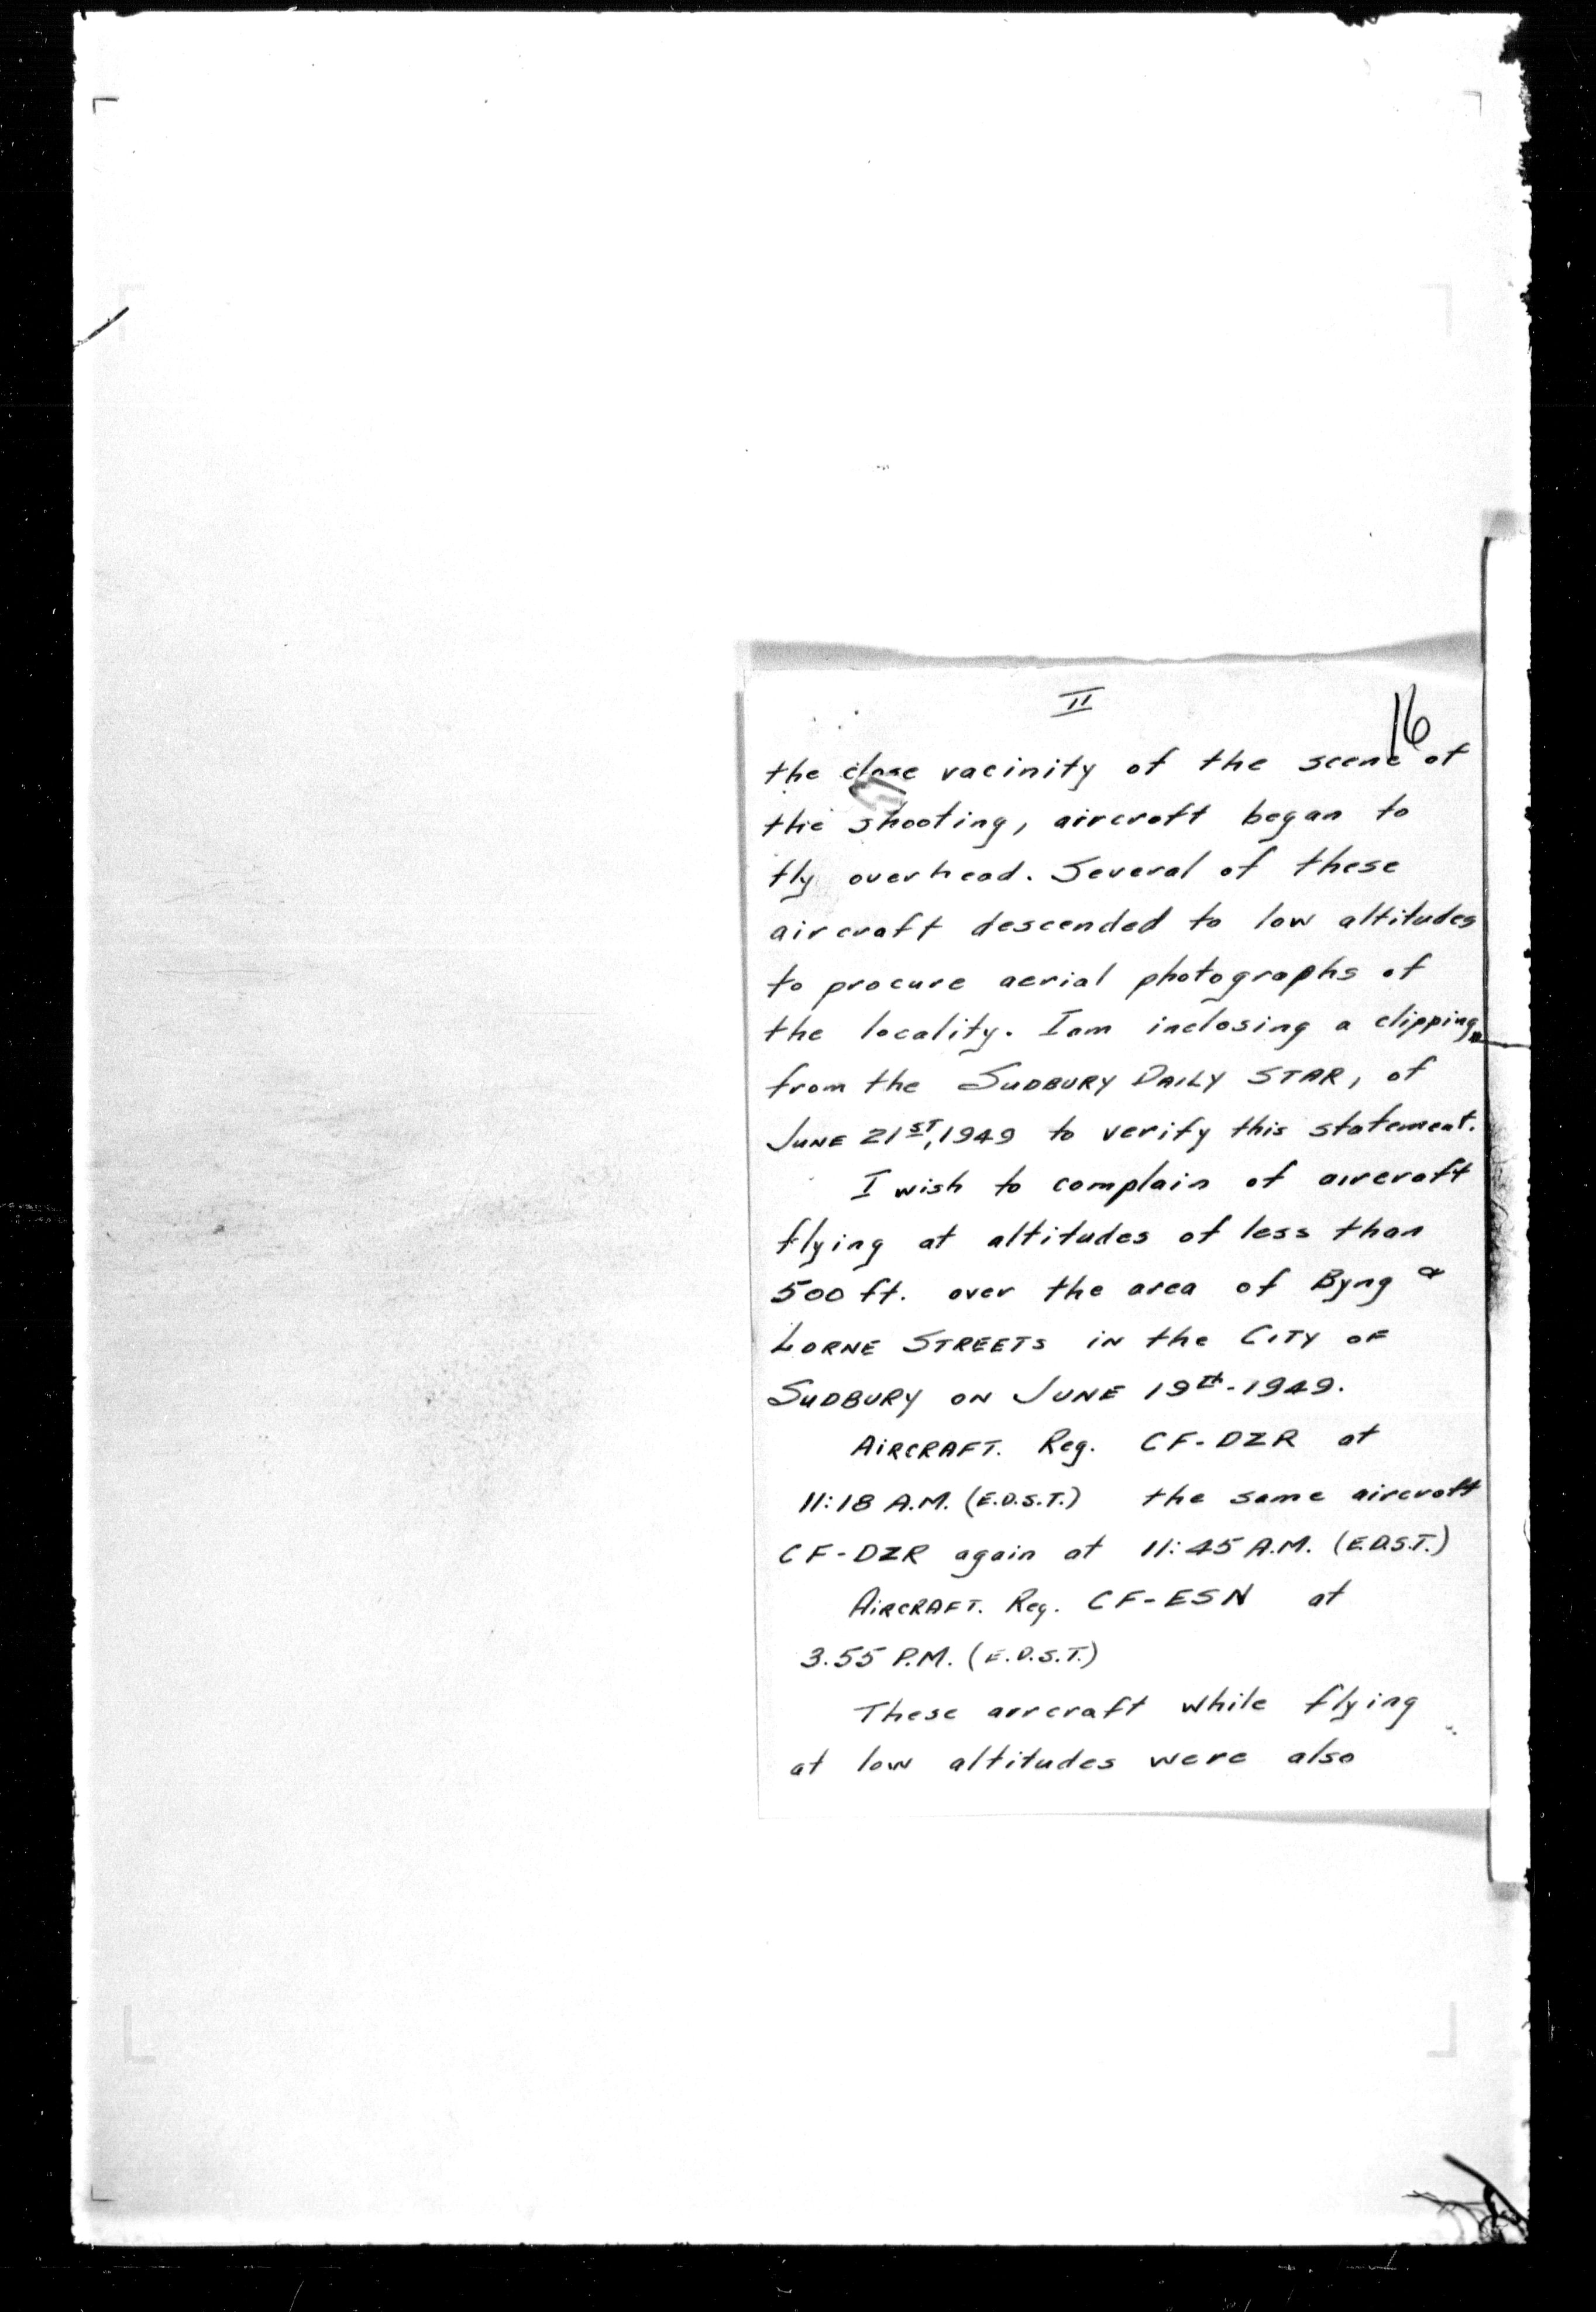 II
16
the close vacinity of the scene of
the shooting, aircraft began to
fly overhead. Several of these
aircraft descended to low altitudes
to procure aerial photographs of
the locality. I am inclosing a clipping
from the SUDBURY DAILY STAR, of
JUNE 21ST, 1949 to verify this statement.
I wish to complain of aircraft
flying at altitudes of less than
500 ft. over the area of Byng &
LORNE STREETS in the CITY OF
SUDBURY ON JUNE 19th-1949.
AIRCRAFT. Reg. CF-DZR at
11:18 A.M. (E.D.S.T.) the same aircraft
CF-DZR again at 11:45 A.M. (E.D.S.T.)
AIRCRAFT. Reg. CF-ESN at
3.55 P.M. (E.D.S.T.)
These aircraft while flying
at low altitudes were also